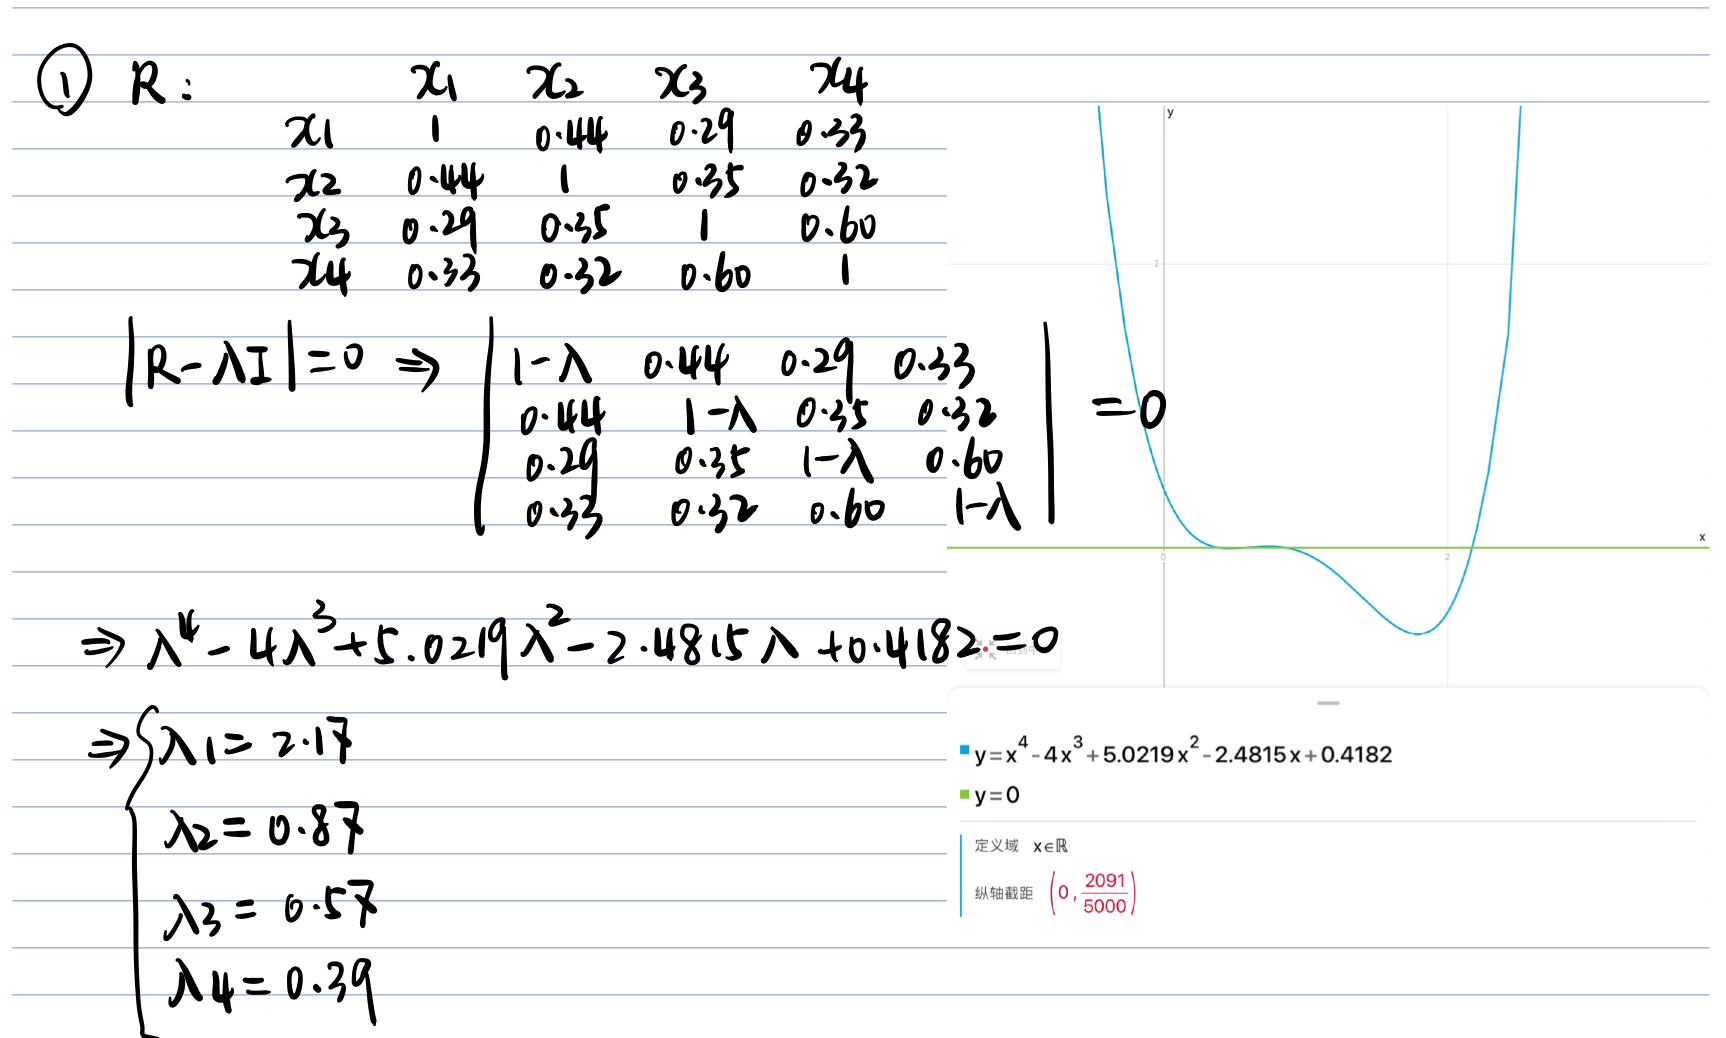 ① R: x1 x2 x3 x4
x1 1 0.44 0.29 0.33
x2 0.44 1 0.35 0.32
x3 0.29 0.35 1 0.60
x4 0.33 0.32 0.60 1
|R-λI|=0 ⇒ | 1-λ 0.44 0.29 0.33
0.44 1-λ 0.35 0.32
0.29 0.35 1-λ 0.60
0.33 0.32 0.60 1-λ | =0
⇒ λ⁴-4λ³+5.0219λ²-2.4815λ+0.4182=0
⇒ { λ1=2.17
λ2=0.87
λ3=0.57
λ4=0.39
y
2
x
0 2
y=x⁴-4x³+5.0219x²-2.4815x+0.4182
y=0
定义域 x∈ℝ
纵轴截距 (0, 2091/5000)